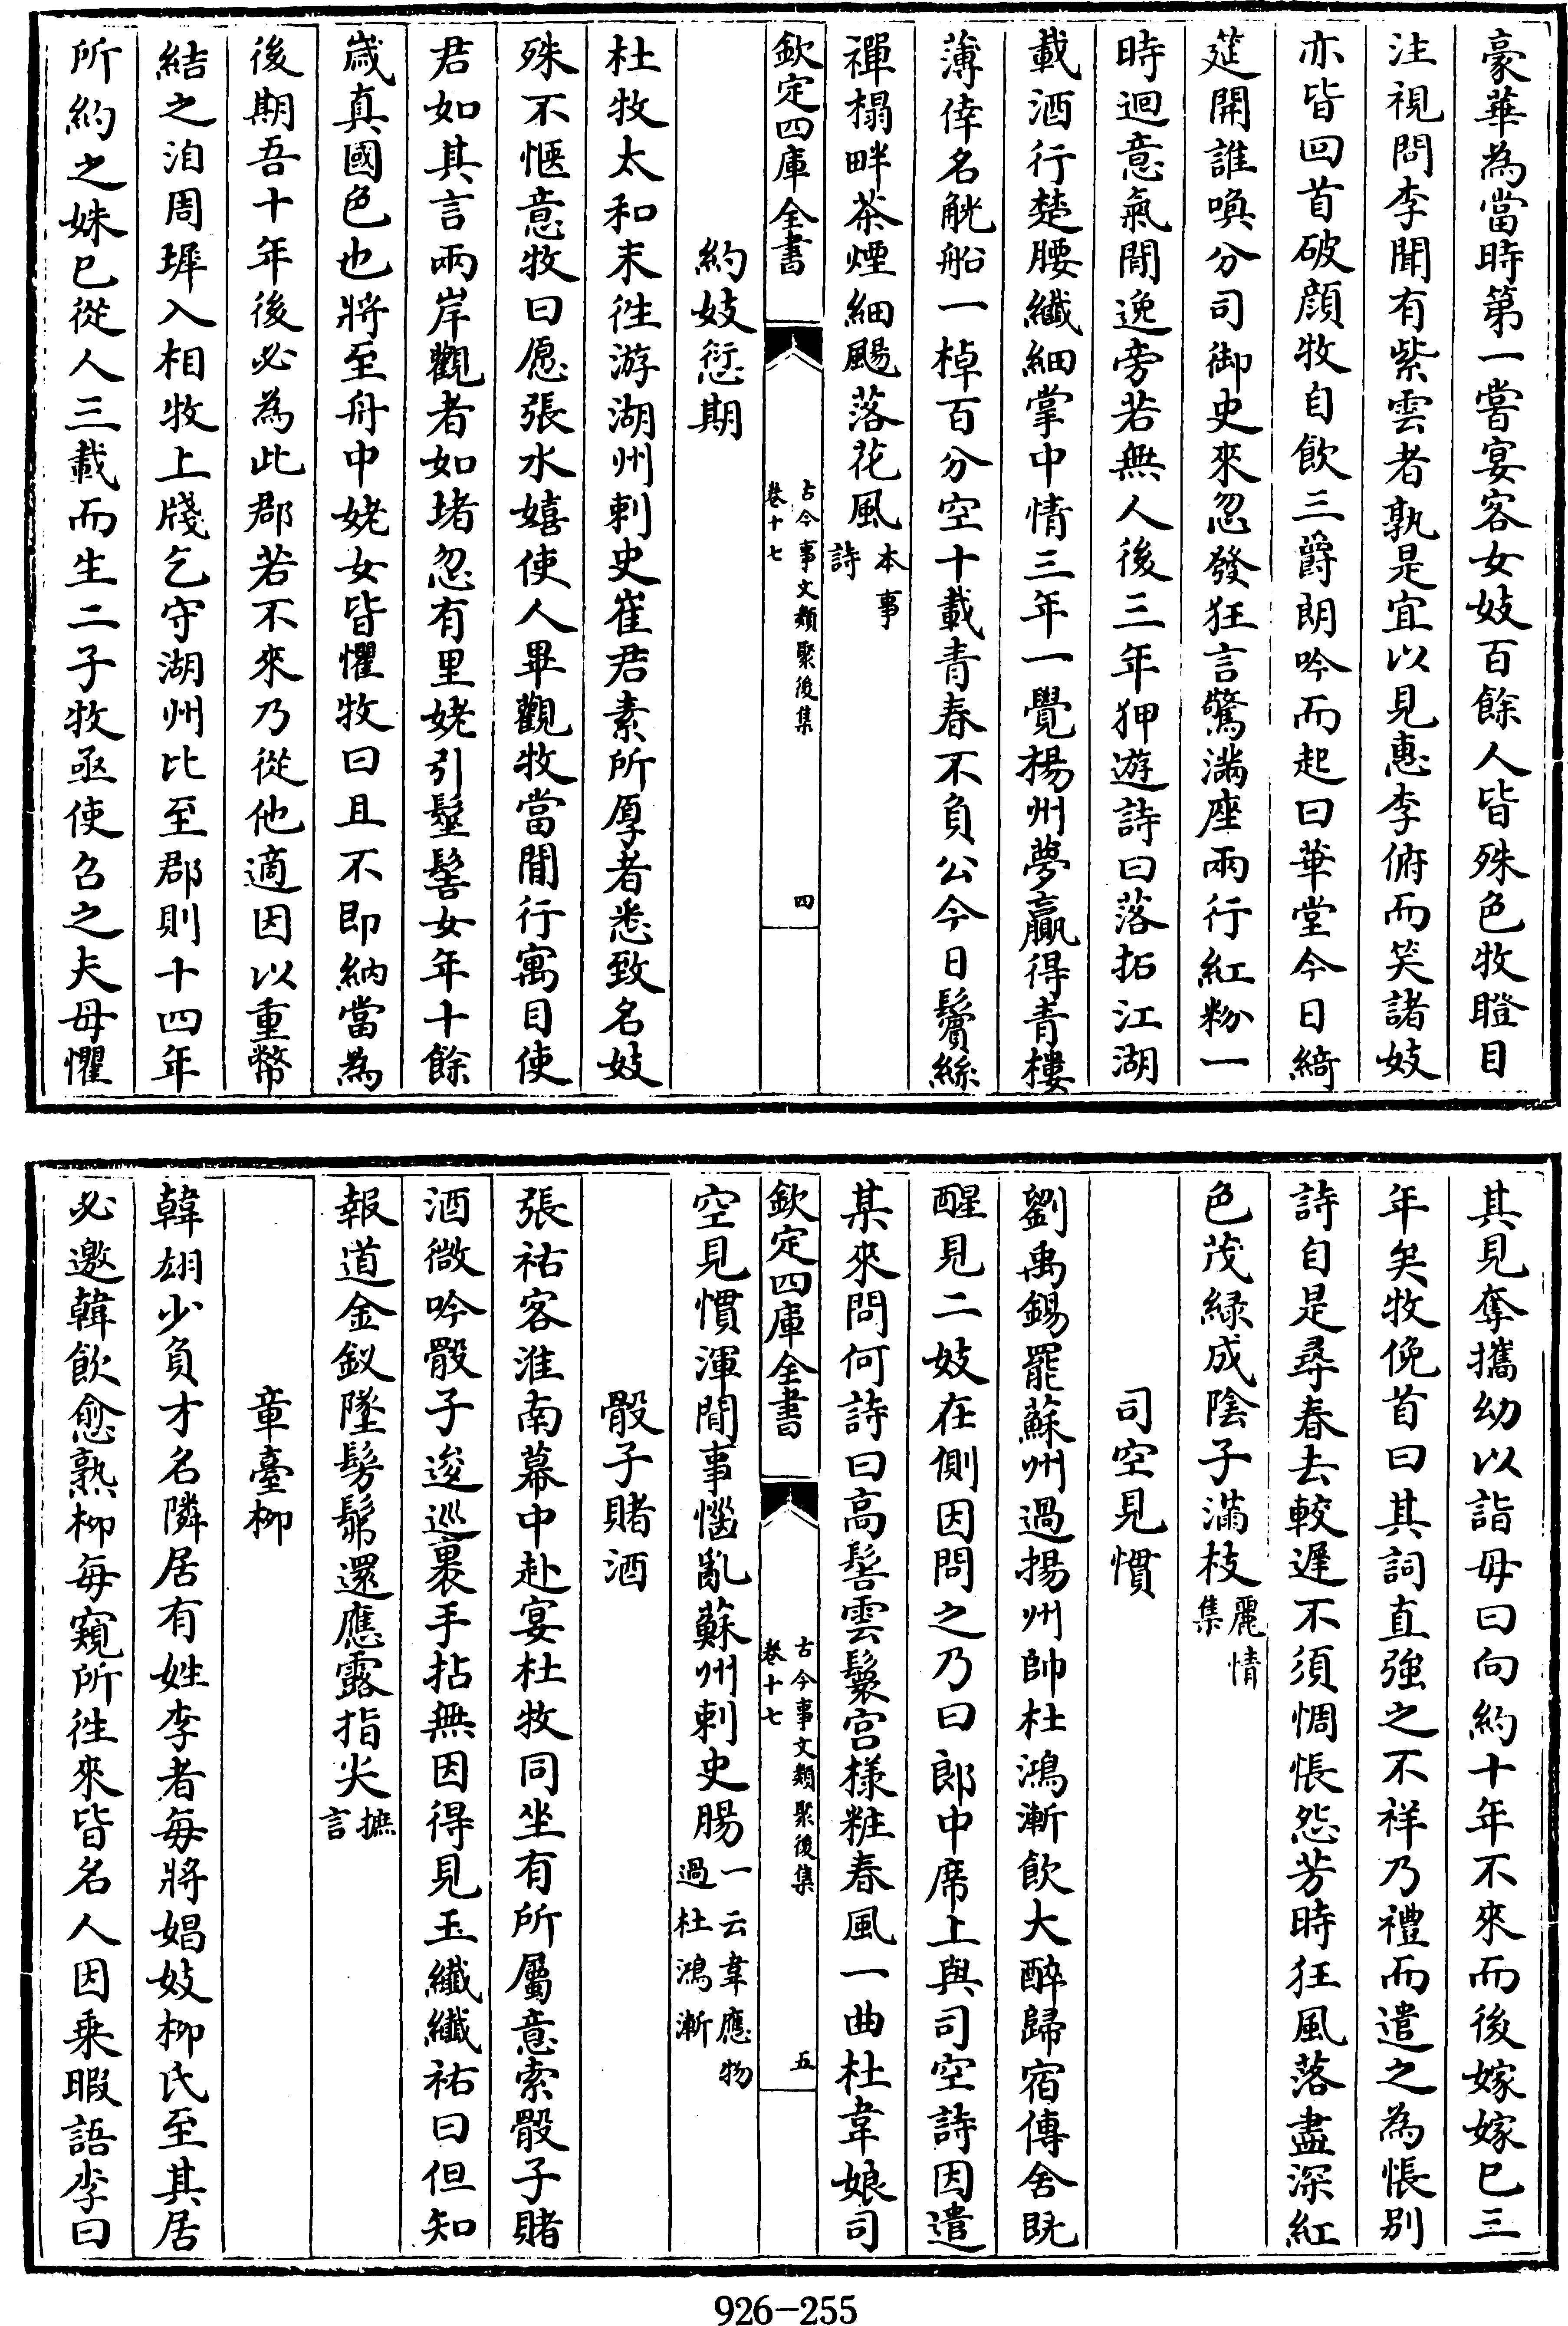 豪華為當時第一嘗宴客女妓百餘人皆殊色牧瞪目
注視問李聞有紫雲者孰是宜以見惠李俯而笑諸妓
亦皆回首破顔牧自飲三爵朗吟而起曰華堂今日綺
筵開誰喚分司御史來忽發狂言驚滿座兩行紅粉一
時迴意氣閒逸旁若無人後三年狎遊詩曰落拓江湖
載酒行楚腰纖細掌中情三年一覺揚州夢贏得青樓
薄倖名觥船一棹百分空十載青春不負公今日鬢絲
禪榻畔茶煙細颺落花風本事
詩
欽定四庫全書
古今事文類聚後集
卷十七
四
約妓愆期
杜牧太和末徃游湖州刺史崔君素所厚者悉致名妓
殊不愜意牧曰愿張水嬉使人畢觀牧當閒行寓目使
君如其言兩岸觀者如堵忽有里姥引髽髻女年十餘
歲真國色也將至舟中姥女皆懼牧曰且不即納當為
後期吾十年後必為此郡若不來乃從他適因以重幣
結之洎周墀入相牧上牋乞守湖州比至郡則十四年
所約之姝已從人三載而生二子牧亟使召之夫母懼
其見奪攜幼以詣母曰向約十年不來而後嫁嫁已三
年矣牧俛首曰其詞直強之不祥乃禮而遣之為悵别
詩自是尋春去較遲不須惆悵怨芳時狂風落盡深紅
色茂緑成陰子滿枝麗情
集
司空見慣
劉禹錫罷蘇州過揚州帥杜鴻漸飲大醉歸宿傳舍既
醒見二妓在側因問之乃曰郎中席上與司空詩因遣
某來問何詩曰高髻雲鬟宫様粧春風一曲杜韋娘司
欽定四庫全書
古今事文類聚後集
卷十七
五
空見慣渾閒事惱亂蘇州刺史腸一云韋應物
過杜鴻漸
骰子賭酒
張祜客淮南幕中赴宴杜牧同坐有所屬意索骰子賭
酒微吟骰子逡巡裹手拈無因得見玉纖纖祜曰但知
報道金釵墜髣髴還應露指尖摭
言
章臺柳
韓翃少負才名隣居有姓李者每將娼妓柳氏至其居
必邀韓飲愈熟柳每窺所徃來皆名人因乘暇語李曰
926-255